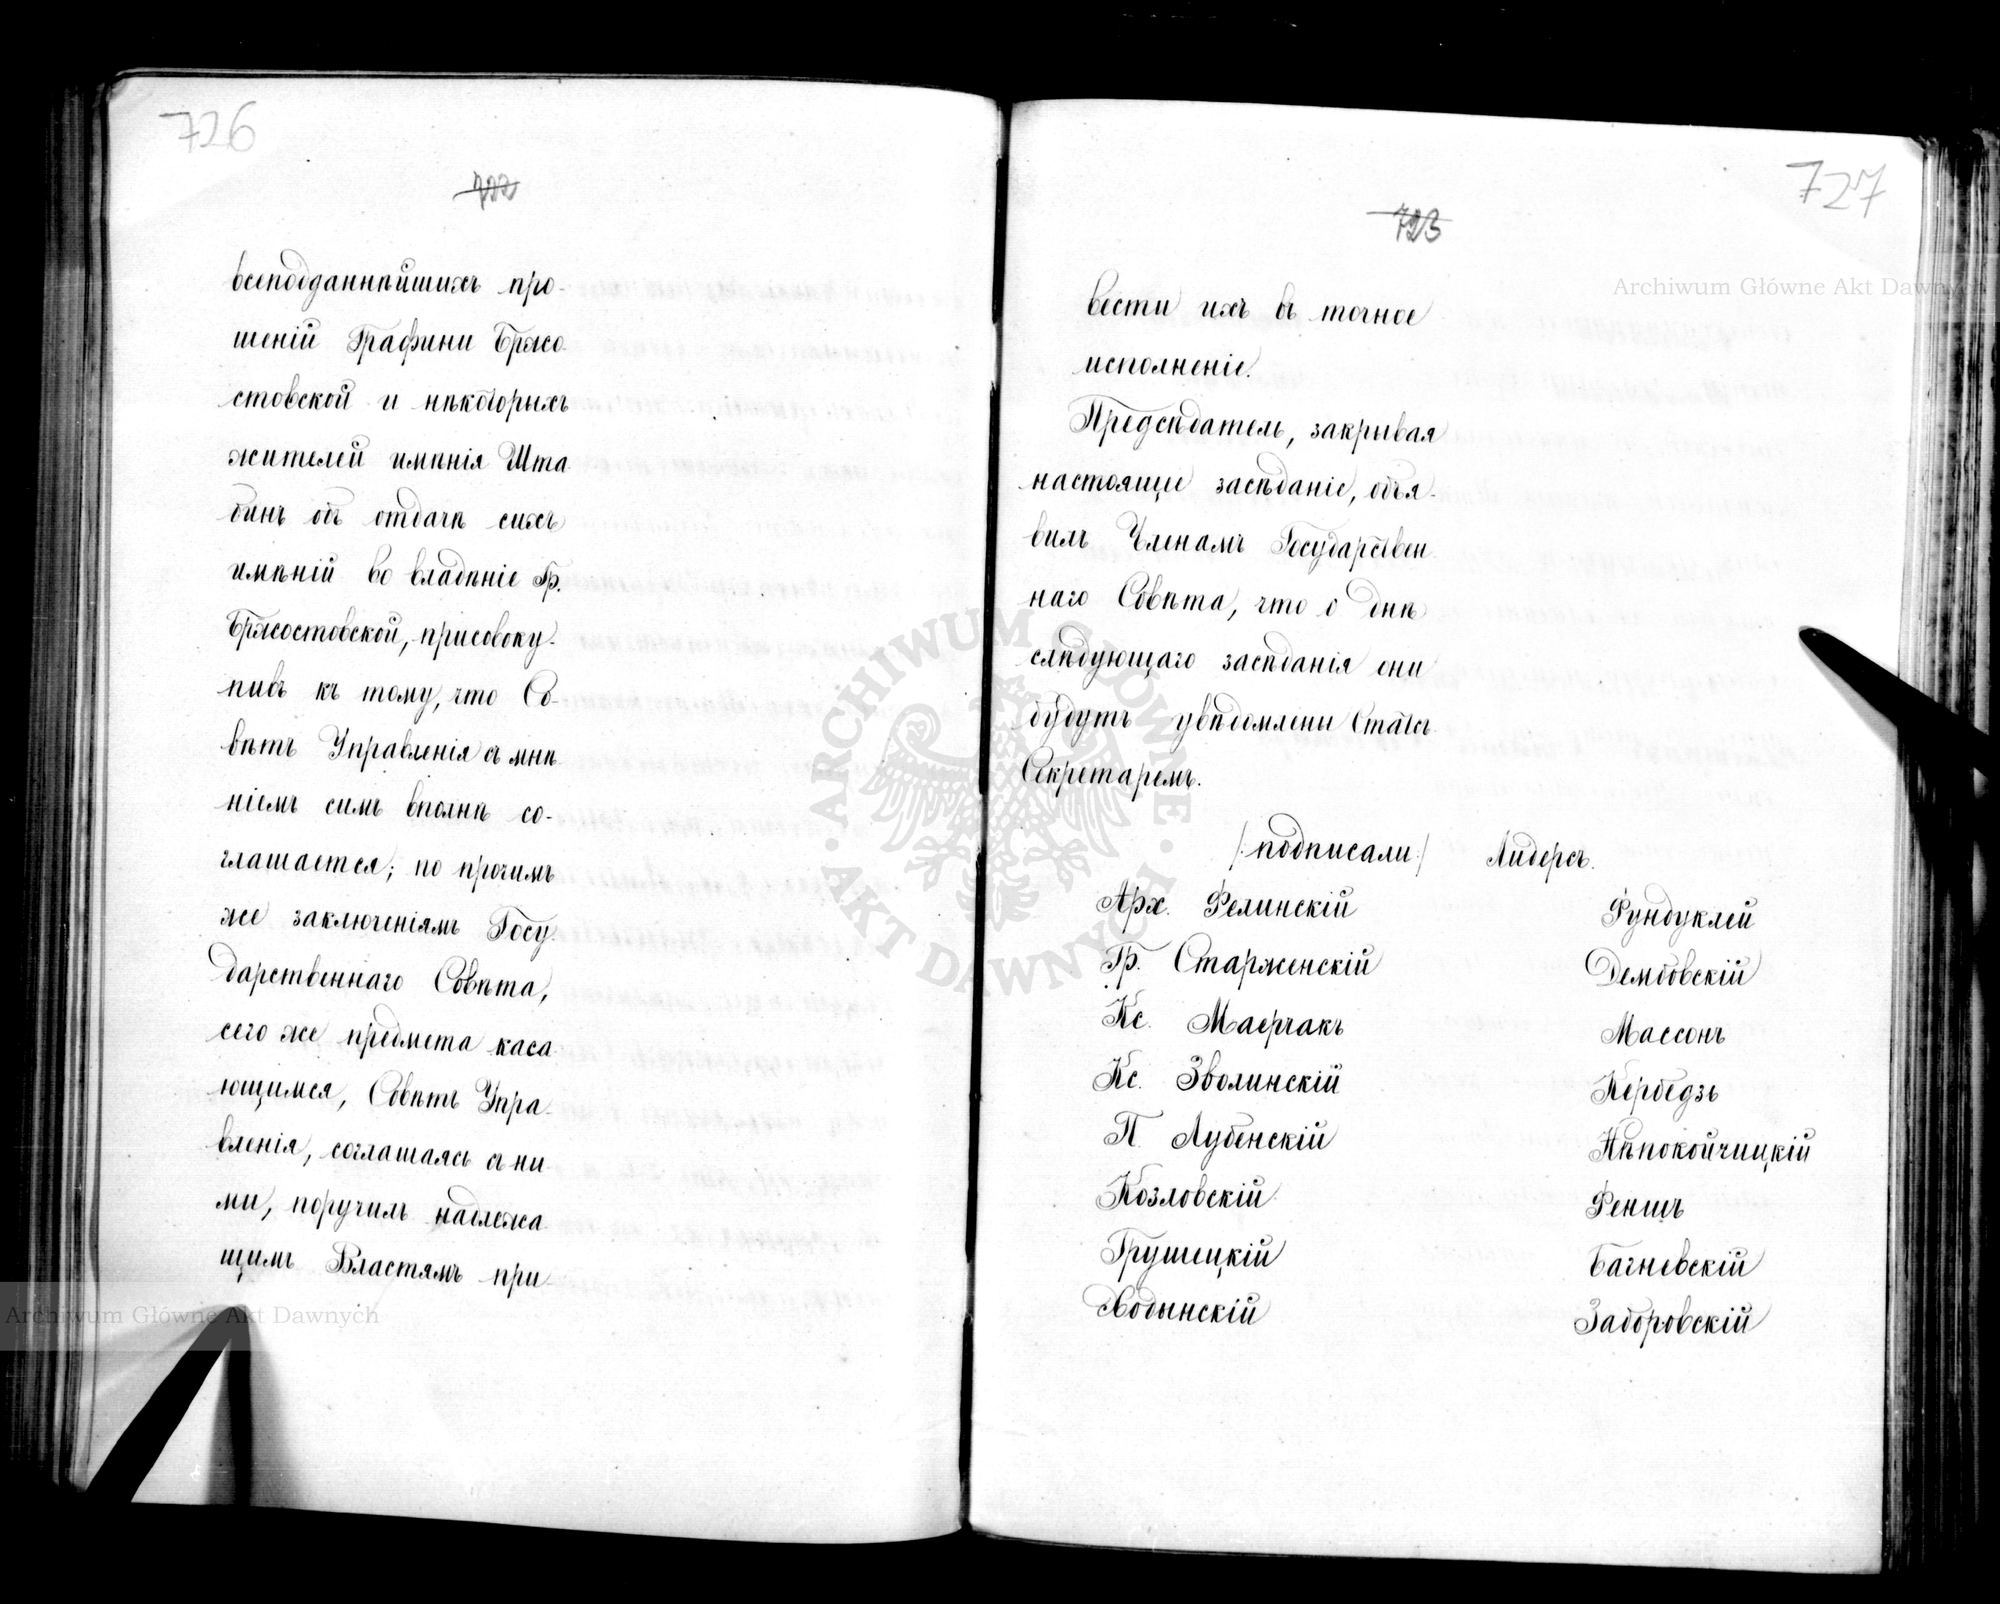 726
722
всеподданнѣйшихъ про-
шеній Графини Бржо-
стовской и нѣкоторыхъ
жителей имѣнія Шта-
бинъ объ отдачѣ сихъ
имѣній во владѣніе Гр.
Бржостовской, присовоку-
пивъ къ тому, что Со-
вѣтъ Управленія съ мнѣ-
ніемъ симъ вполнѣ со-
глашается; по прочимъ
же заключеніямъ Госу-
дарственнаго Совѣта,
сего же предмета каса-
ющимся, Совѣтъ Упра-
вленія, соглашаясь съ ни-
ми, поручилъ надлежа-
щимъ Властямъ при-
727
723
вести ихъ въ точное
исполненіе.
Предсѣдатель, закрывая
настоящее засѣданіе, объя-
вилъ Членамъ Государствен-
наго Совѣта, что о днѣ
слѣдующаго засѣданія они
будутъ увѣдомлены Статсъ-
Секретаремъ.
/:подписали:/ Лидерсъ.
Арх. Фелинскій Фундуклей
Гр. Старженскій Дембовскій
Кс. Маерчакъ Массонъ
Кс. Зволинскій Кербедзь
П. Лубенскій Нѣпокойчицкій
Козловскій Феншъ
Грушецкій Багневскій
Водынскій Заборовскій
Archiwum Główne Akt Dawnych
Archiwum Główne Akt Dawnych
ARCHIWUM GŁÓWNE AKT DAWNYCH